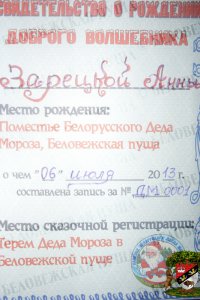 СВИДЕТЕЛЬСТВО О РОЖДЕНИИ
ДОБРОГО ВОЛШЕБНИКА
Зарецкой Анны
Место рождения:
Поместье Белорусского Деда
Мороза, Беловежская пуща
о чем "06" июля 2013 г.
составлена запись за № ДМ 0001
Место сказочной регистрации:
Терем Деда Мороза в
Беловежской пуще